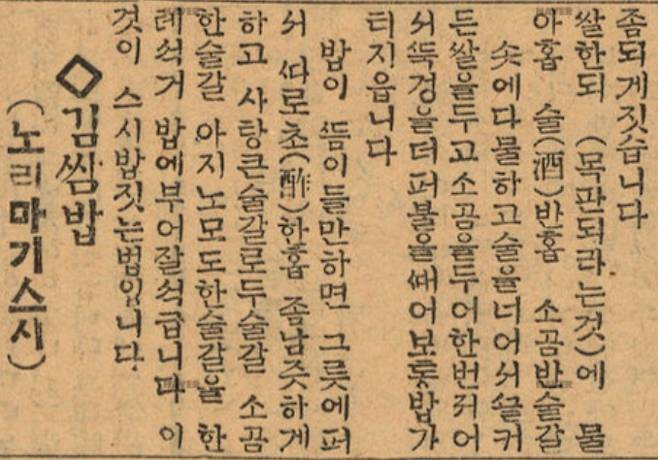 좀되게짓습니다
쌀한되 (목판되라는것)에 물
아홉 술(酒)반홉 소곰반술갈
솟에다물하고술을너어서ᄭᅳᆯ커
든쌀을두고소곰을두어한번저어
서ᄯᅮᆨ경을더퍼불을ᄯᅢ어보통밥가
티지읍니다
밥이 ᄯᅳᆷ이들만하면 그릇에퍼
서 ᄯᅡ로초(酢)한홉 좀남즛하게
하고 사탕큰술갈로두술갈 소곰
한술갈 아지노모도한술갈을 한
데석거 밥에부어잘석급니다 이
것이 스시밥짓는법입니다
◇김쌈밥
(노리마기스시)